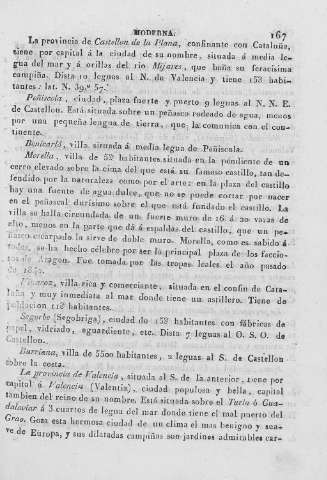 MODERNA. 167
La provincia de Castellon de la Plana, confinante con Cataluña,
tiene por capital á la ciudad de su nombre, situada á media le-
gua del mar y á orillas del rio Mijares, que baña su feracísima
campiña. Dista 10 leguas al N. de Valencia y tiene 15® habi-
tantes: lat. N. 39.º 57.'
Peñíscola, ciudad, plaza fuerte y puerto 9 leguas al N. N. E.
de Castellon. Está situada sobre un peñasco rodeado de agua, menos
por una pequeña lengua de tierra, que la comunica con el con-
tinente.
Benicarló, villa situada á media legua de Peñíscola.
Morella, villa de 5® habitantes situada en la pendiente de un
cerro elevado sobre la cima del que está su famoso castillo, tan de-
fendido por la naturaleza como por el arte: en la plaza del castillo
hay una fuente de agua dulce, que no se puede cortar por nacer
en el peñascal durísimo sobre el que está fundado el castillo. La
villa se halla circundada de un fuerte muro de 16 á 20 varas de
alto, menos en la parte que dá á espaldas del castillo, que un pe-
ñasco escarpado la sirve de doble muro. Morella, como es sabido á
todos, se ha hecho célebre por ser la principal plaza de los faccio-
sos de Aragon. Fue tomada por las tropas leales el año pasado
de 1840.
Vinaroz, villa rica y comerciante, situada en el confin de Cata-
luña y muy inmediata al mar donde tiene un astillero. Tiene de
poblacion 11® habitantes.
Segorbe (Segobriga), ciudad de 15® habitantes con fábricas de
papel, vidriado, aguardiente, etc. Dista 7 leguas al O. S. O. de
Castellon.
Burriana, villa de 5500 habitantes, 2 leguas al S. de Castellon
sobre la costa.
La provincia de Valencia, situada al S. de la anterior, tiene por
capital á Valencia (Valentia), ciudad populosa y bella, capital
tambien del reino de su nombre. Está situada sobre el Turia ó Gua-
dalaviar á 3 cuartos de legua del mar donde tiene el mal puerto del
Grao. Goza esta hermosa ciudad de un clima el mas benigno y sua-
ve de Europa, y sus dilatadas campiñas son jardines admirables car-